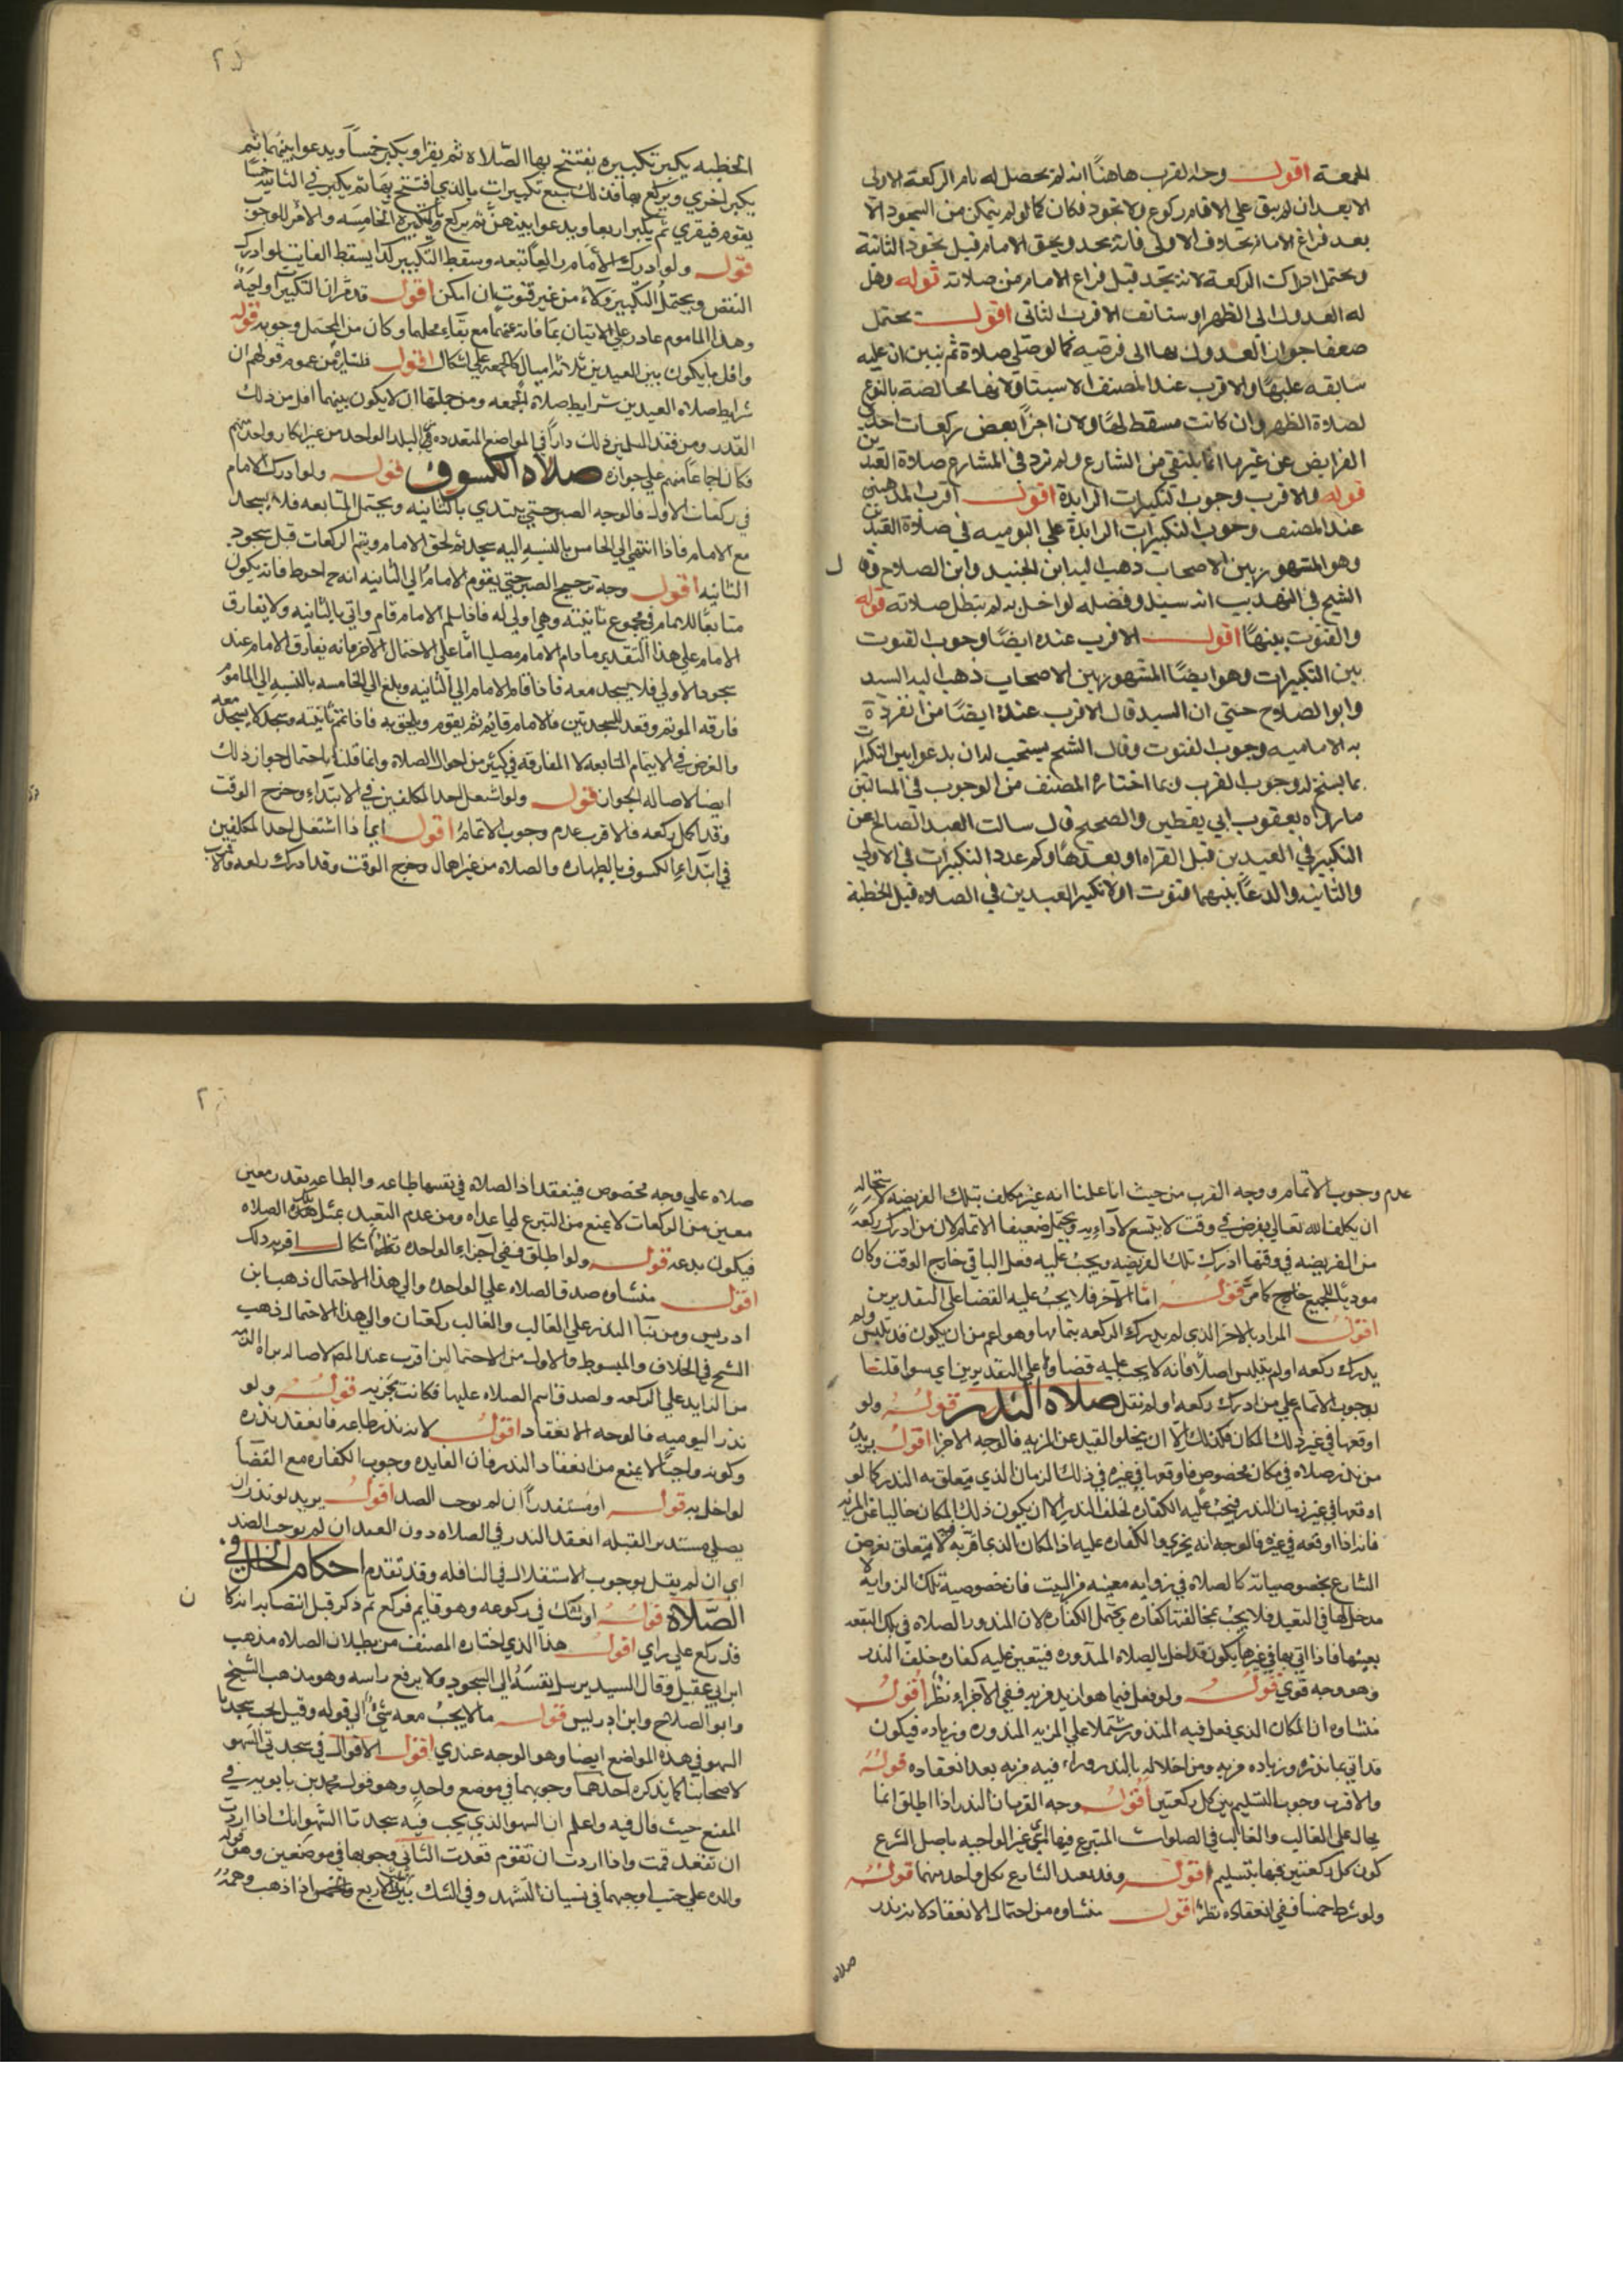 الجمعة اقول وجه القرب هاهنا انه لم يحصل له تام الركعة الاولى
الا بعد ان لم يبق على الامام ركوع ولا سجود فكان كما لو لم يتمكن من السجود الا
بعد فراغ الامام بخلاف الاولى فانه يسجد ويلحق الامام قبل سجود الثانية
ويحتمل ادراك الركعة لانه يسجد قبل فراغ الامام من صلاته قوله وهل
له العدول الى الظهر او يستانف الاقرب الثاني اقول يحتمل
ضعيفا جواز العدول بها الى فرضيه كما لو صلى صلاة ثم تبين ان عليه
سابقه عليها والاقرب عند المصنف الاستيناف لانها مخالفة بالنوع
لصلاة الظهر وان كانت مسقطة لها ولان اجزا بعض ركعات احدى
الفرايض عن غيرها انما يتلقى من الشارع ولم ترد في المشارع صلاة العيدين
قوله والاقرب وجوب التكبيرات الزايدة اقول اقرب المذهبين
عند المصنف وجوب التكبيرات الزايدة على اليوميه في صلاة العيدين
وهو المشهور بين الاصحاب ذهب اليه ابن الجنيد وابن الصلاح وقال
الشيخ في التهذيب انه سنة وفضله لو اخل به لم تبطل صلاته قوله
والقنوت بينها اقول الاقرب عنده ايضا وجوب القنوت
بين التكبيرات وهو ايضا المشهور بين الاصحاب ذهب اليه السيد
وابو الصلاح حتي ان السيد قال الاقرب عنده ايضا من انفردة
به الاماميه وجوب القنوت وقال الشيخ يستحب له ان يدعو بين التكبيرات
بما يسنح له وجوب القرب فيما اختاره المصنف من الوجوب في المسالتين
ما رواه يعقوب ابي يقطين والصحيح قال سالت العبد الصالح عن
التكبير في العيدين قبل القراه او بعدها وكم عدد التكبيرات في الاولي
والثانيه والدعا بينهما قنوت او لا تكبير العيدين في الصلاه قبل الخطبة
الخطبه يكبر تكبيره يفتتح بها الصلاه ثم يقرا ويكبر خمسا ويدعو بينهما ثم
يكبر اخري ويركع بها فذلك سبع تكبيرات بالذي افتتح بها ثم يكبر في الثانيه خمسا
يقوم فيقري ثم يكبر اربعا ويدعو بينهن ثم يركع بالتكبيره الخامسه والامر للوجوب
قوله ولو ادرك الامام راكعا تبعه وسقط التكبير كذا يسقط الفايت لو ادرك
البعض ويحتمل التكبير ولاء من غير قنوت ان امكن اقول قد مر ان التكبير واجبه
وهذا الماموم عاد رعلي الاتيان بما فاته عنهما مع بقاء محلهما وكان من المحتمل وجوبه قوله
واقل ما يكون بين العيدين ثلاثه اميال كالجمعه على اشكال اقول من عموم قولهم ان
شرايط صلاه العيدين شرايط صلاة الجمعه ومن جملتها ان لا يكون بينهما اقل من ذلك
القدر ومن فقد المسلمين ذلك دارا في المواضع المتعدده في البلد الواحد من غير انكار واحد منهم
فكان اجماعا منهم علي جوازه صلاه الكسوف قوله ولو ادرك الامام
في ركعات الاولى فالوجه الصبر حتي يبتدي بالثانيه ويحتمل المتابعه فلا يسجد
مع الامام فاذا انتهي الي الخامس بالنسبه اليه سجد ثم لحق الامام ويتم الركعات قبل سجود
الثانيه اقول وجه ترجيح الصبر حتي يقوم الامام الي الثانيه انه ح احوط فانه يكون
متابعا للامام في مجموع ثانيته وهي اولي له فاذا سلم الامام قام واتي بالثانيه ولا يفارق
الامام علي هذا التقدير ما دام الامام مصليا اما علي الاحتمال الاخر فانه يفارق الامام عند
سجود الاولي فلا يسجد معه فاذا قام الامام الي الثانيه وبلغ الي الخامسه بالنسبه الي الماموم
فارقه الموتم وقعد للسجدتين والامام قايم ثم يقوم ويلحق به فاذا تم ثانيته وسجد كما سجد معه
والغرض في الايتمام المتابعه لا المفارقه في كثير من احوال الصلاه وانما قلنا باحتمال جواز ذلك
ايضا لاصاله الجواز قوله ولو اشتغل احد المكلفين في الابتداء وخرج الوقت
وقد اكمل ركعه فالاقرب عدم وجوب الاتمام اقول ايما ذا اشتغل احد المكلفين
في ابتداء الكسوف بالطهاره والصلاه من غير اهمال وخرج الوقت وقد ادرك ركعه فالاقرب
عدم وجوب الاتمام ووجه القرب من حيث انا علمنا انه غير مكلف بتلك الفريضه لاستحاله
ان يكلف الله تعالي بفرض في وقت لا يتسع لاداءيه ويحتمل ضعيفا الاتمام لان من ادرك ركعة
من الفريضه في وقتها ادرك تلك الفريضه ويجب عليه فعل الباقي خارج الوقت وكان
موديا للجميع كما مر قوله اما الآخر فلا يجب عليه القضا على التقديرين
اقول المراد بالاخر الذي لم يدرك الركعه بتمامها وهو اعم من ان يكون قد تلبس ولم
يدرك ركعه اولم يتلبس اصلا فانه لا يجب عليه قضاوها علي التقديرين اي سوا قلنا
بوجوب الاتمام علي من ادرك ركعه او لم نقل صلاه النذر قوله ولو
اوقعها في غير ذلك المكان فكذلك الا ان يخلو القيد عن المزيه فالوجه الاجزا اقول يريد
من نذر صلاه في مكان مخصوص فاوقعها في غيره في ذلك الزمان الذي يتعلق به النذر كما لو
اوقعها في غير زمان النذر فيجب عليه الكفاره لخلف النذر الا ان يكون ذلك المكان خاليا عن المزيه
فانه اذا اوقعه في غيره فالوجه انه يجزي ولا كفاره عليه اذ المكان الذي لا مزيه فيه لا يتعلق بغرض
الشارع بخصوصياته كالصلاه في زوايه معينه من البيت فان خصوصية تلك الزوايه لا
مدخل لها في التقيد فلا يجب بمخالفتها كفاره ويحتمل الكفاره لان المنذور الصلاه في تلك البقعه
بعينها فاذا اتي بها في غيرها يكون قد اخل بالصلاه المنذوره فيتعين عليه كفاره خلف النذر
وهو وجه قوي قوله ولو فعل فيما هو ازيد مزيه ففي الاجزاء نظر اقول
منشاوه ان المكان الذي فعل فيه المنذور مشتملا علي المزيه المنذوره وزياده فيكون
قد اتي بما نذره وزياده مزيه ومن اخلاله بالنذر وراء فيه مزيه بعد انعقاده قوله
والاقرب وجوب التسليم بين كل ركعتين اقول وجه القرب ان النذر اذا اطلق انما
يحال على الغالب والغالب في الصلوات المتبرع فيها اعني غير الواجبه باصل الشرع
كون كل ركعتين منها بتسليم اقول وقد بعد الشارع بكل واحد منهما قوله
ولو شرط خمسا ففي انعقاده نظر اقول منشاوه من احتمال الانعقاد لانه نذر
صلاه
صلاه علي وجه مخصوص فينعقد اذ الصلاه في نفسها طاعه والطاعه بقدر معين
معين من الركعات لا يمنع من التبرع لما عداه ومن عدم التعبد بمثل هذه الصلاه
فيكون بدعه قوله ولو اطلق ففي اجزاء الواحده اشكال اقربه ذلك
اقول منشاوه صدق الصلاه علي الواحده والي هذا الاحتمال ذهب ابن
ادريس ومن بناء النذر علي الغالب والغالب ركعتان والي هذا الاحتمال ذهب
الشيخ في الخلاف والمبسوط والاول من الاحتمالين اقرب عند المص لاصاله براه الذمه
من الزايد علي الركعه ولصدق اسم الصلاه عليها فكانت مجزيه قوله ولو
نذر اليوميه فالوجه الانعقاد اقول لانه نذر طاعه فانعقد نذره
وكونه واجبا لا يمنع من انعقاد النذر فان الفايده وجوب الكفاره مع القضا
لو اخل به قوله او مستدبرا ان لم نوجب الضد اقول يريد لو نذر ان
يصلي مستدبر القبله انعقد النذر في الصلاه دون القيد ان لم نوجب الضد
اي ان لم يقل بوجوب الاستقبال في النافله وقد تقدم احكام الخلل في
الصلاه قوله او شك في ركوعه وهو قايم فركع ثم ذكر قبل انتصابه انه كان
قد ركع علي راي اقول هذا الذي اختاره المصنف من بطلان الصلاه مذهب
ابن ابي عقيل وقال السيد يرسل نفسه الي السجود ولا يرفع راسه وهو مذهب الشيخ
وابو الصلاح وابن ادريس قوله ما لا يجب معه شيء الي قوله وقيل يجب سجدتا
السهو في هذه المواضع ايضا وهو الوجه عندي اقول الاقوال في سجدتي السهو
لاصحابنا كما يذكره احدها وجوبهما في موضع واحد وهو قول محمد بن بابويه في
المقنع حيث قال فيه واعلم ان السهو الذي يجب فيه سجدتا السهو انك اذا اردت
ان تقعد قمت واذا اردت ان تقوم قعدت الثاني وجوبها في موضعين وهو قول
والده علي اوجبهما في نسيان التشهد وفي الشك بين الاربع والخمس اذا ذهب وهمه